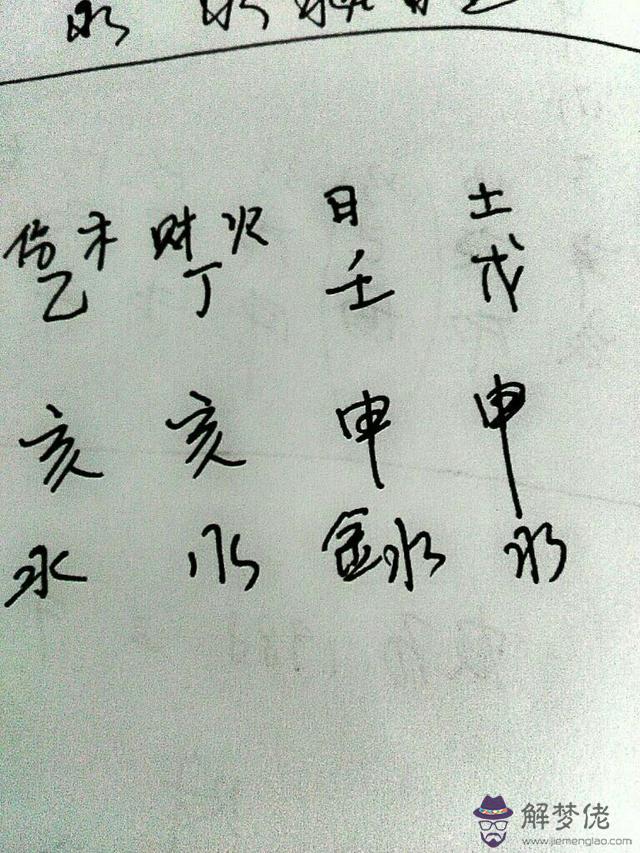 伤木 财火 日 土
乙 丁 壬 戊
亥 亥 申 申
水 水 金水 水
解梦佬
www.jiemenglao.com